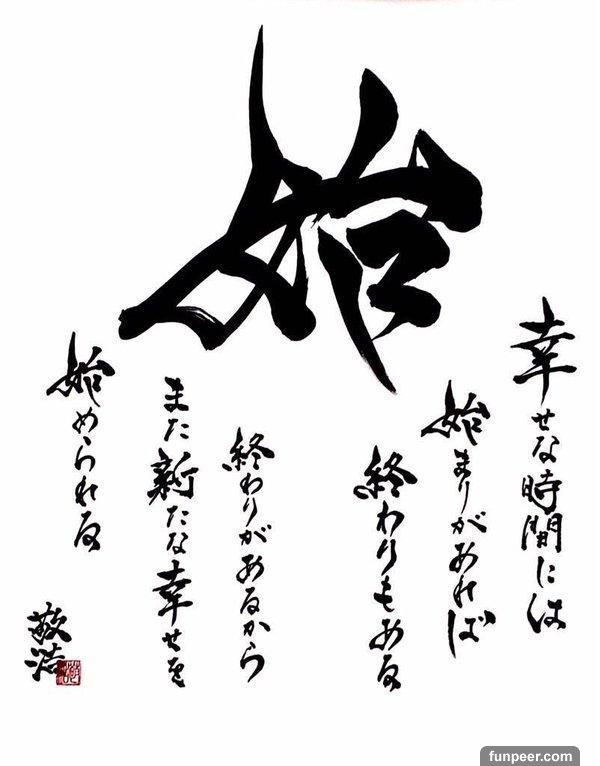 始
幸せな時間には
始まりがあれば
終わりもある
終わりがあるから
また新たな幸せを
始められる
敬浩
funpeer.com